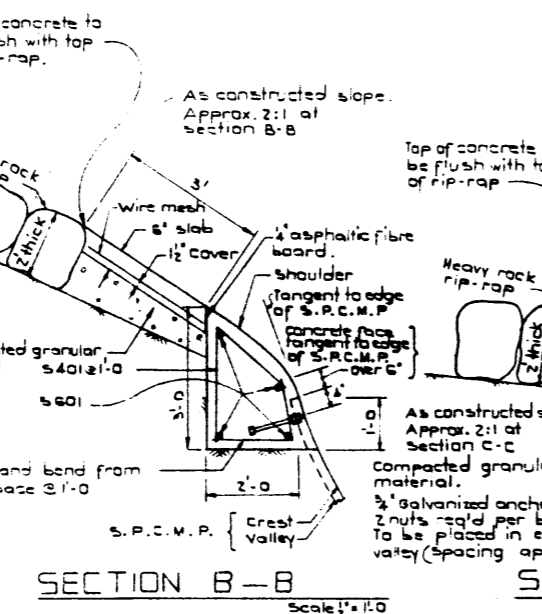 concrete to
sh with top
-rap.
As constructed slope.
Approx. 2:1 at
section B-B
Top of concrete
be flush with to
of rip-rap
rock
3'
Wire mesh
6" slab
1½" Cover
2' thick
¼" asphaltic fibre
board.
Shoulder
Tangent to edge
of S.P.C.M.P
Concrete face
tangent to edge
of S.P.C.M.P.
over 6"
Heavy rock
rip-rap
2' thick
ted granular
S401@1'-0
S601
3'-0
1'-0
2'-0
As constructed s
Approx. 2:1 at
Section C-C
and bend from
base @ 1'-0
Compacted granula
material.
¾" Galvanized ancho
2 nuts req'd per b
To be placed in e
valley (Spacing ap
S.P.C.M.P.
Crest
Valley
SECTION B-B
S